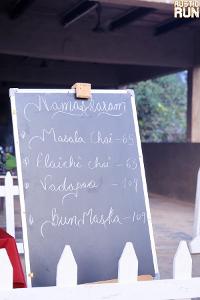 RUSTIC
RUN
Namaskaram
Masala Chai - 65
Elaichi chai - 65
Vadapav - 109
Bun Maska - 109